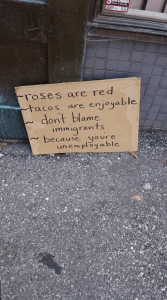 ~roses are red
~tacos are enjoyable
~ don't blame
immigrants
~ because youre
unemployable